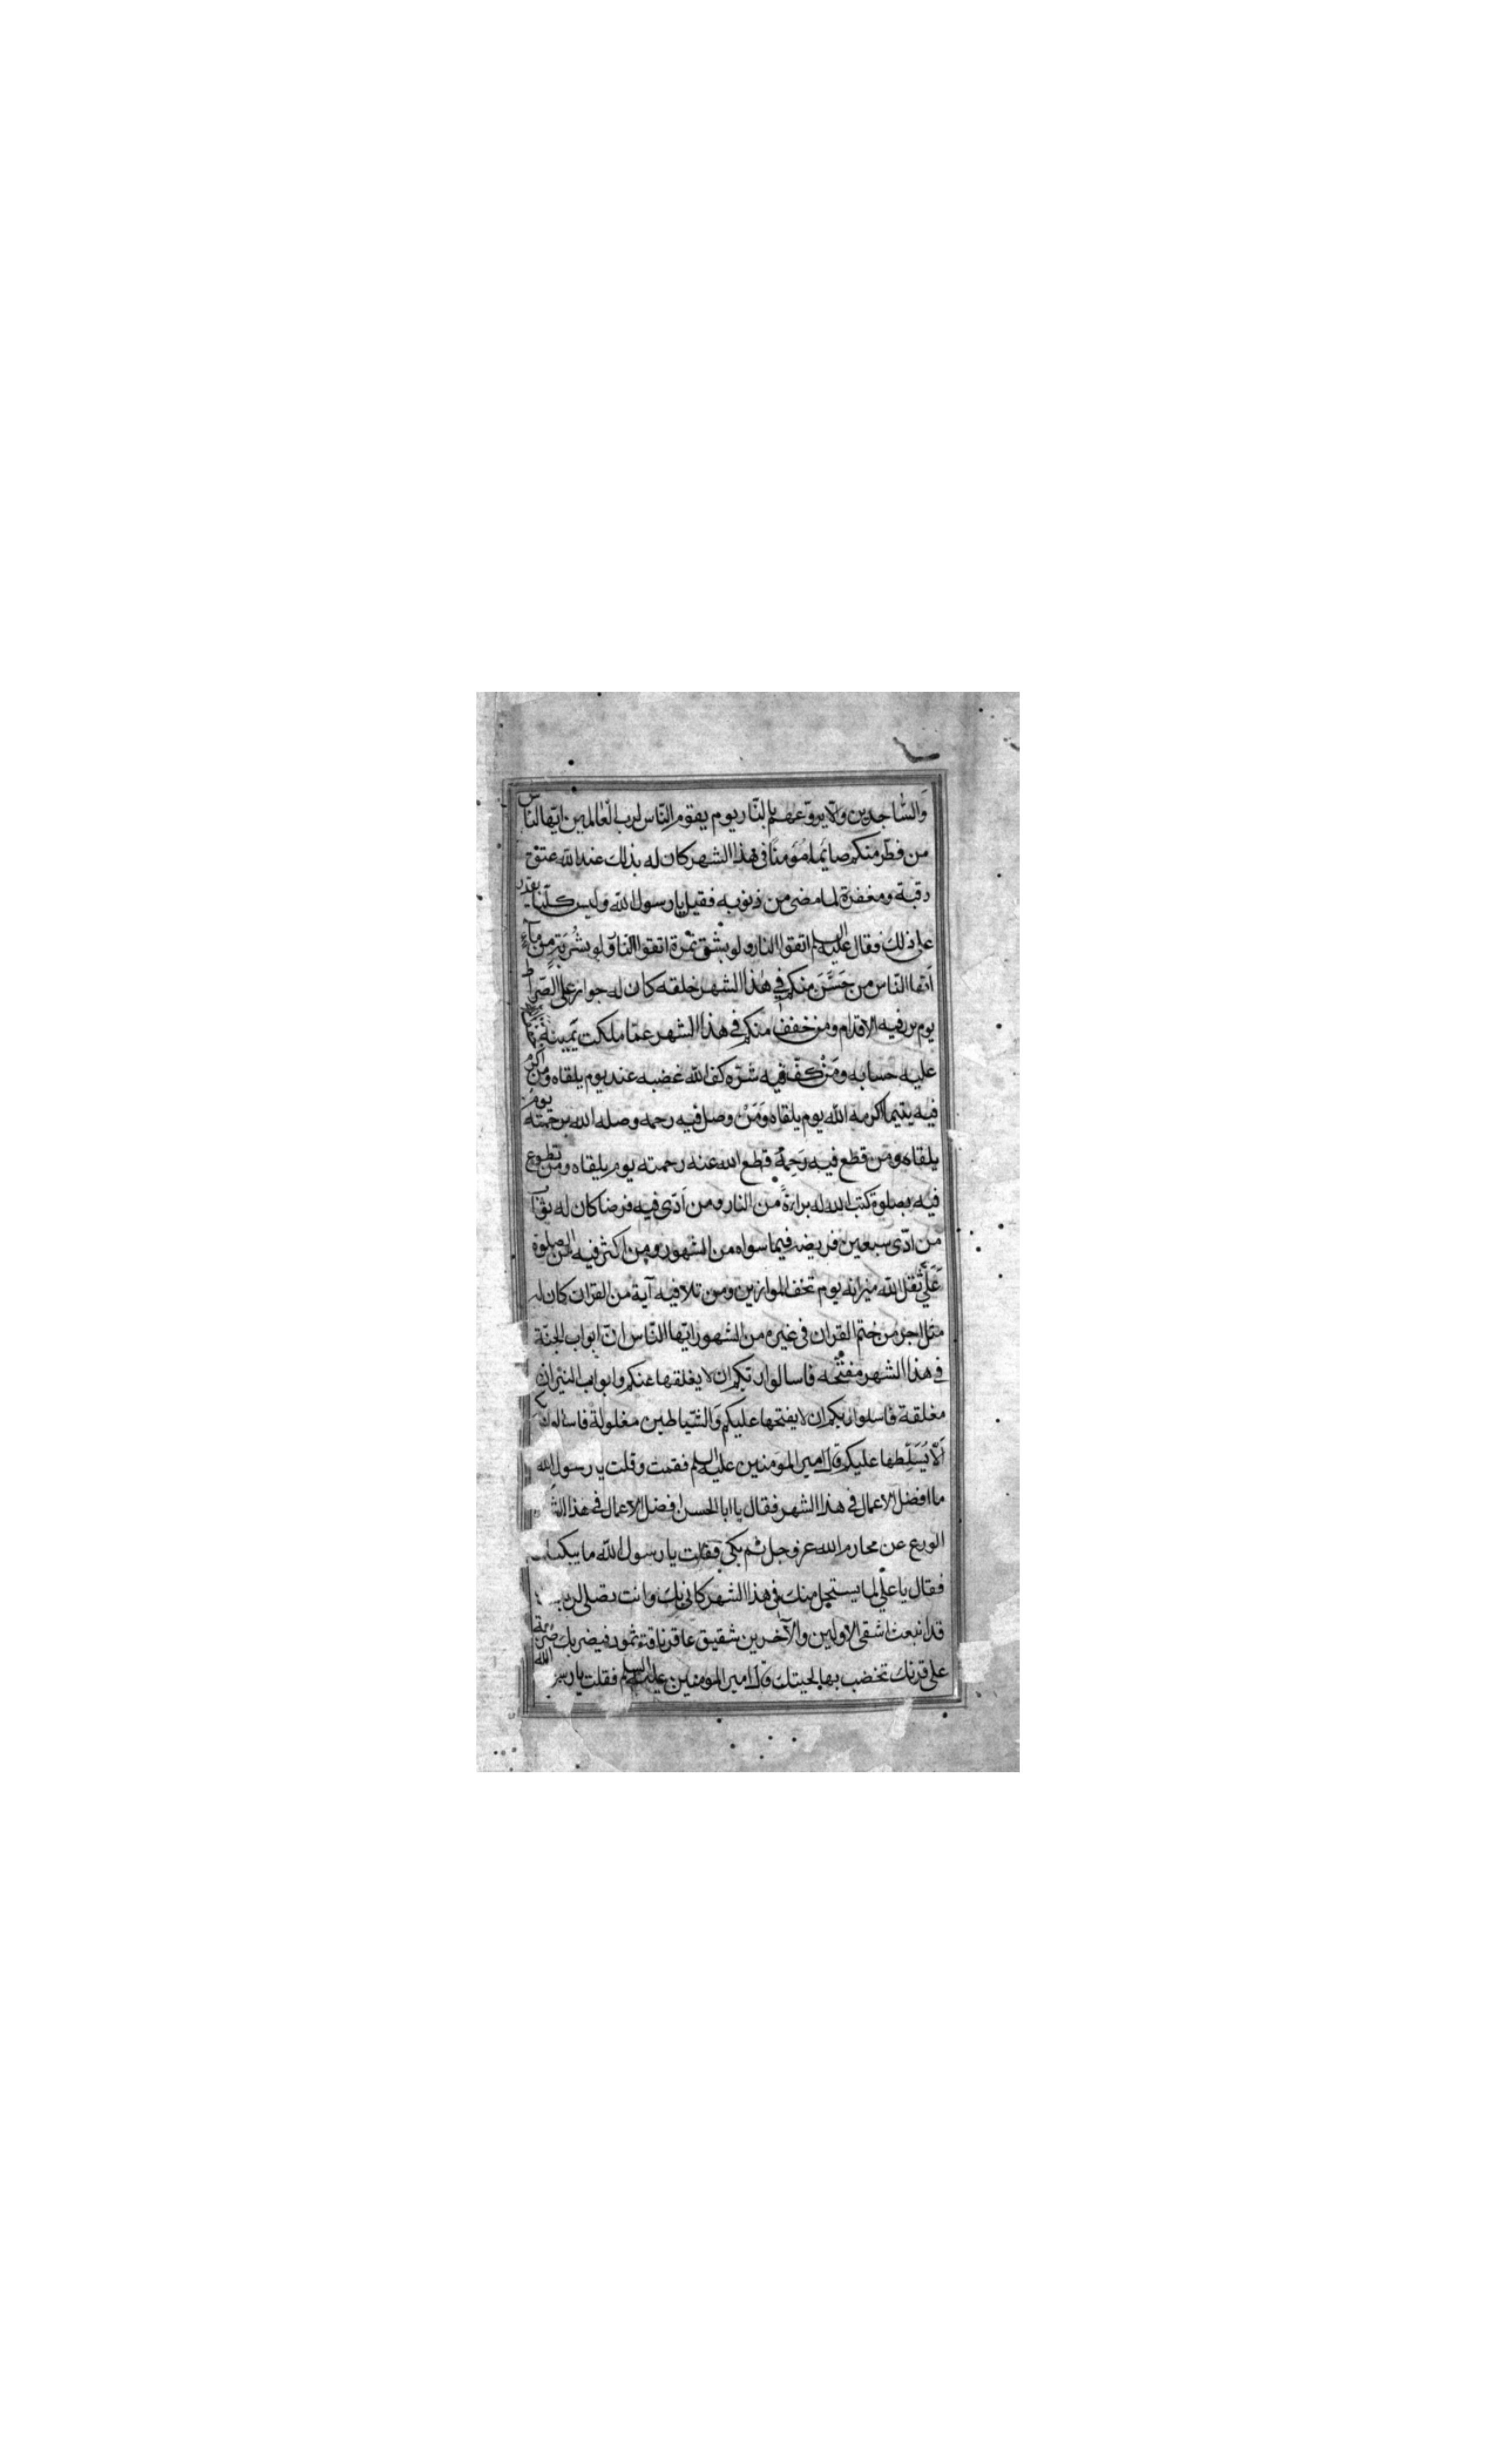 وَالسّاجدين والّا يروّعهم بالنّار يوم يقوم النّاس لربّ العالمين ايّها النّاس
من فطّر منكم صائما مؤمنا فى هذا الشهر كان له بذلك عند الله عتق
رقبة ومغفرة لما مضى من ذنوبه فقيل يا رسول الله وليس كلّنا يقدر
على ذلك فقال عليه السلم اتقوا النار ولو بشق تمرة اتقوا النار ولو بشربةٍ من مآءٍ
ايّها النّاس من حَسَّنَ منكم في هٰذا الشهر خلقه كان له جواز على الصّراط
يوم تزل فيه الاقدام ومن خفف منكم فى هذا الشهر عمّا ملكت يمينه خفّف
عليه حسابه ومَنْ كفّ فيه شرّه كف الله غضبه عنه يوم يلقاه ومن اكرم
فيه يتيما اكرمه الله يوم يلقاه وَمَنْ وصل فيه رحمه وصله الله برحمته يوم
يلقاه ومن قطع فيه رَحِمَهُ قطع الله عنه رحمته يوم يلقاه ومن تطوع
فيه بصلوة كتب الله له براءةً من النار ومن اَدّى فيه فرضا كان له ثواب
من ادّى سبعين فريضة فيما سواه من الشهور ومن اكثر فيه من الصلوة
عَلَيَّ ثقل الله ميزانه يوم تخف الموازين ومن تلا فيه آية من القران كان له
مثل اجر من ختم القران فى غيره من الشهور ايّها النّاس انّ ابواب الجنّة
فى هذا الشهر مفتّحه فاسالوا ربّكم ان لا يغلقها عنكم وابواب النيران
مغلقة فاسلوا ربكم ان لا يفتحها عليكم وَالشّياطين مغلولة فاسالوا ربكم
اَلّا يُسَلِّطها عليكم قال امير المؤمنين عليه السلم فقمت وقلت يا رسول الله
ما افضل الاعمال فى هذا الشهر فقال يا ابا الحسن افضل الاعمال فى هذا الشّ
الورع عن محارم الله عز وجل ثم بكى فقلت يا رسول الله ما يبكيك
فقال يا علّي لما يستحل منك فى هذا الشهر كانى بك وانت تصلى لربك
قد انبعث اشقى الاولين والآخرين شقيق عاقر ناقة ثمود فيضربك ضربة
على قرنك تخضب بها لحيتك قال امير المؤمنين عليه السلم فقلت يا رسول الله